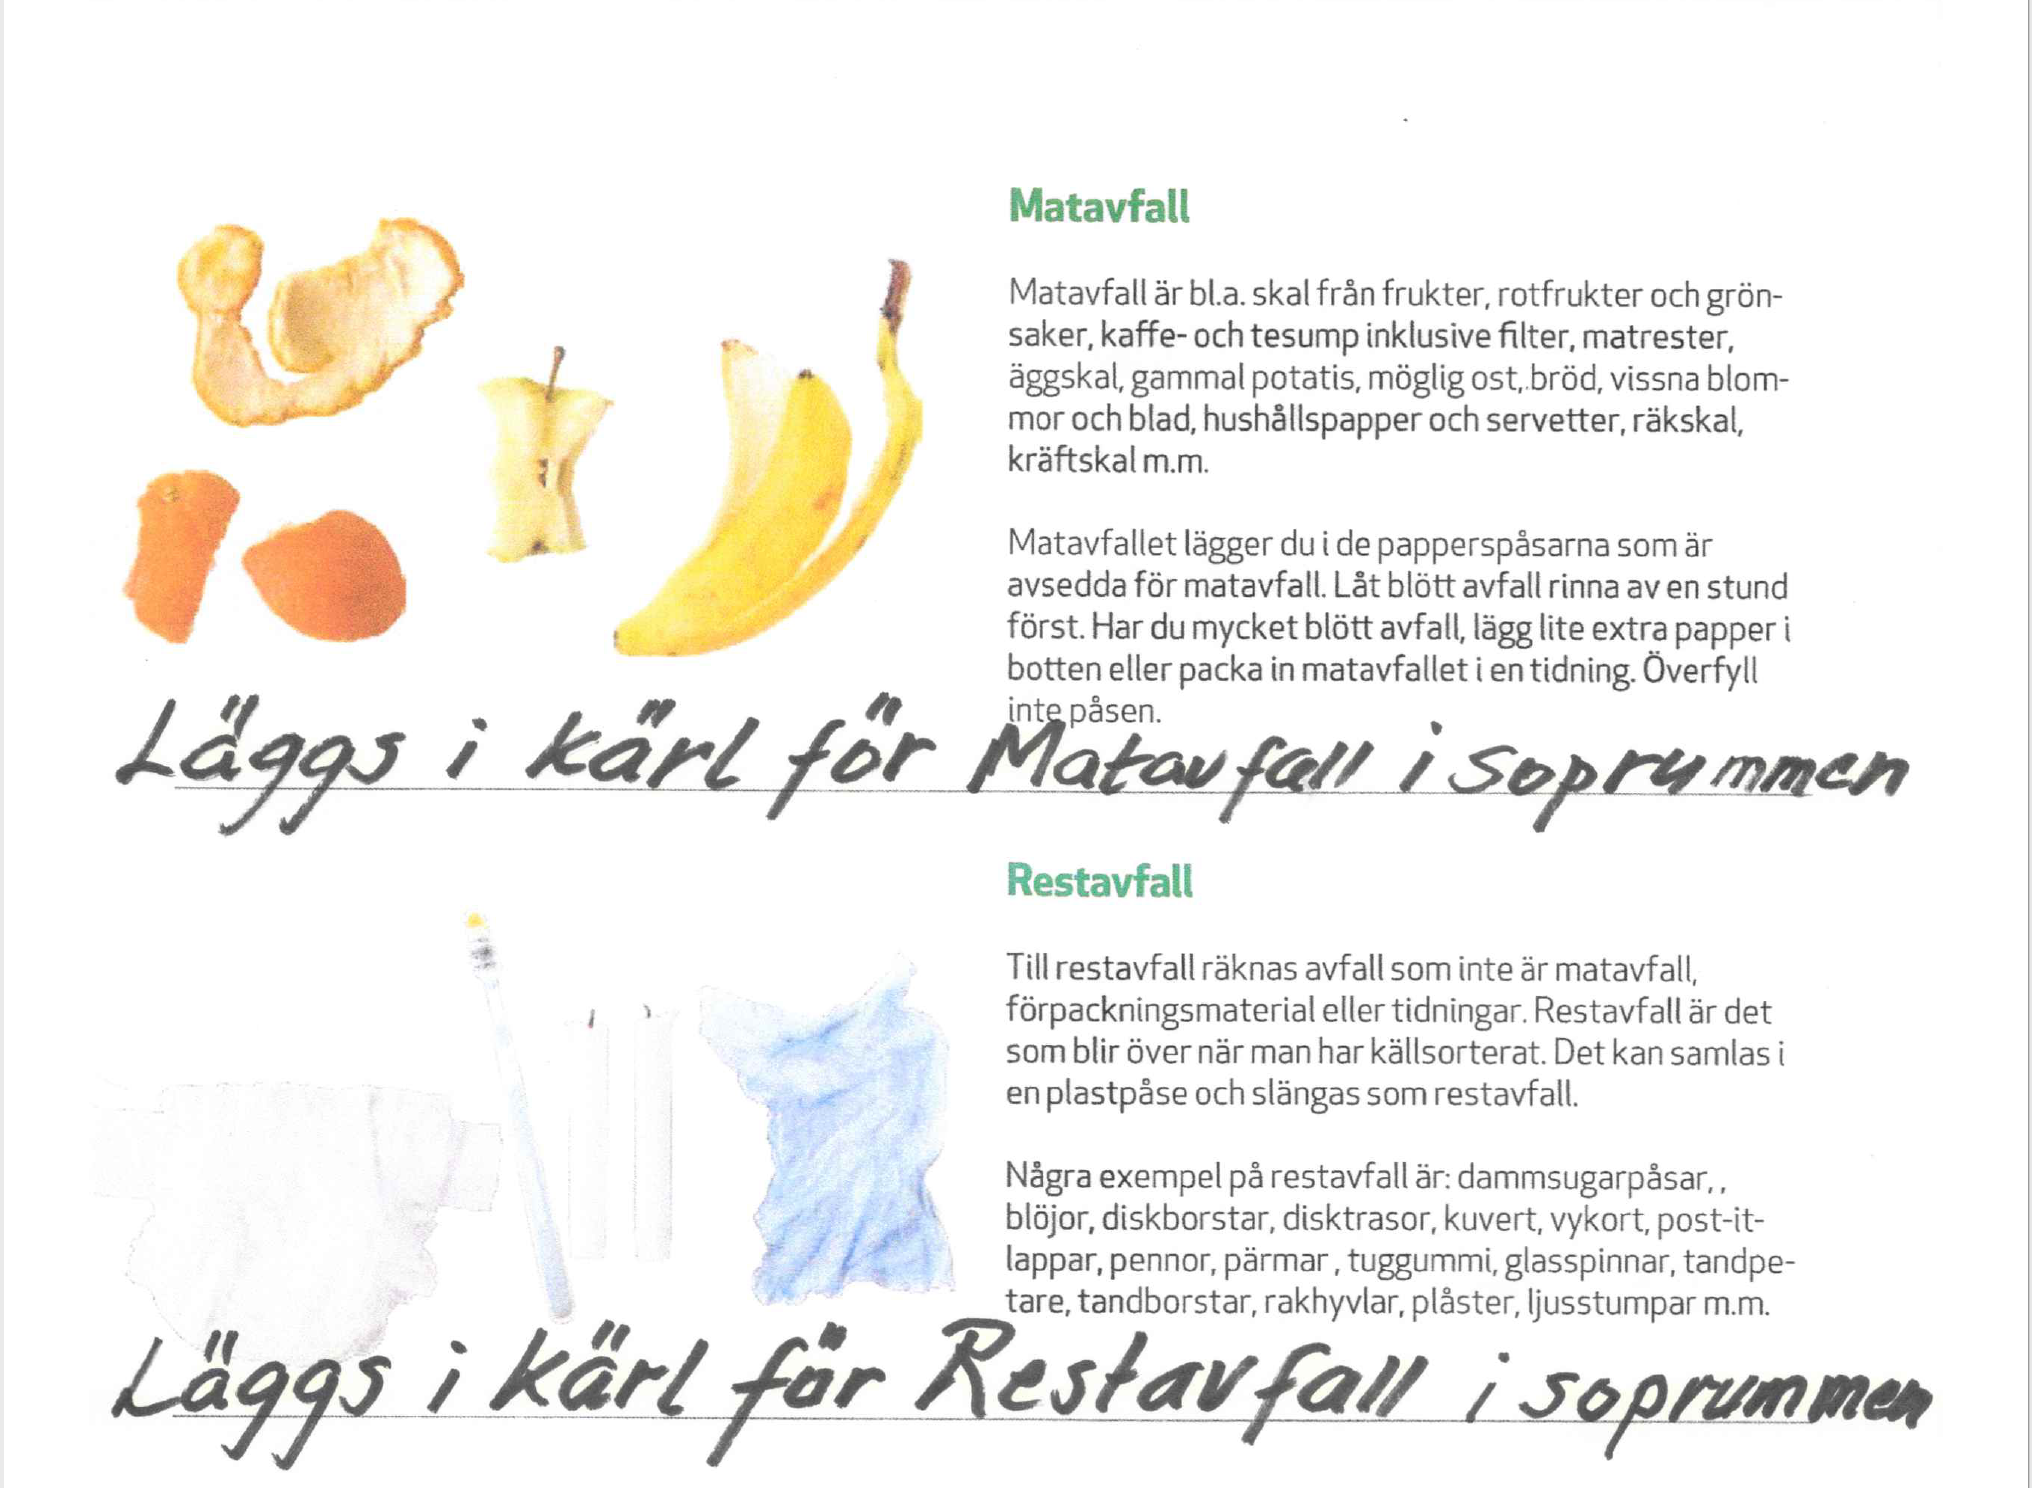 Matavfall
Matavfall är bl.a. skal från frukter, rotfrukter och grön-
saker, kaffe- och tesump inklusive filter, matrester,
äggskal, gammal potatis, möglig ost,.bröd, vissna blom-
mor och blad, hushållspapper och servetter, räkskal,
kräftskal m.m.
Matavfallet lägger du i de papperspåsarna som är
avsedda för matavfall. Låt blött avfall rinna av en stund
först. Har du mycket blött avfall, lägg lite extra papper i
botten eller packa in matavfallet i en tidning. Överfyll
inte påsen.
Läggs i kärl för Matavfall i soprummen
Restavfall
Till restavfall räknas avfall som inte är matavfall,
förpackningsmaterial eller tidningar. Restavfall är det
som blir över när man har källsorterat. Det kan samlas i
en plastpåse och slängas som restavfall.
Några exempel på restavfall är: dammsugarpåsar, ,
blöjor, diskborstar, disktrasor, kuvert, vykort, post-it-
lappar, pennor, pärmar , tuggummi, glasspinnar, tandpe-
tare, tandborstar, rakhyvlar, plåster, ljusstumpar m.m.
Läggs i kärl för Restavfall i soprummen